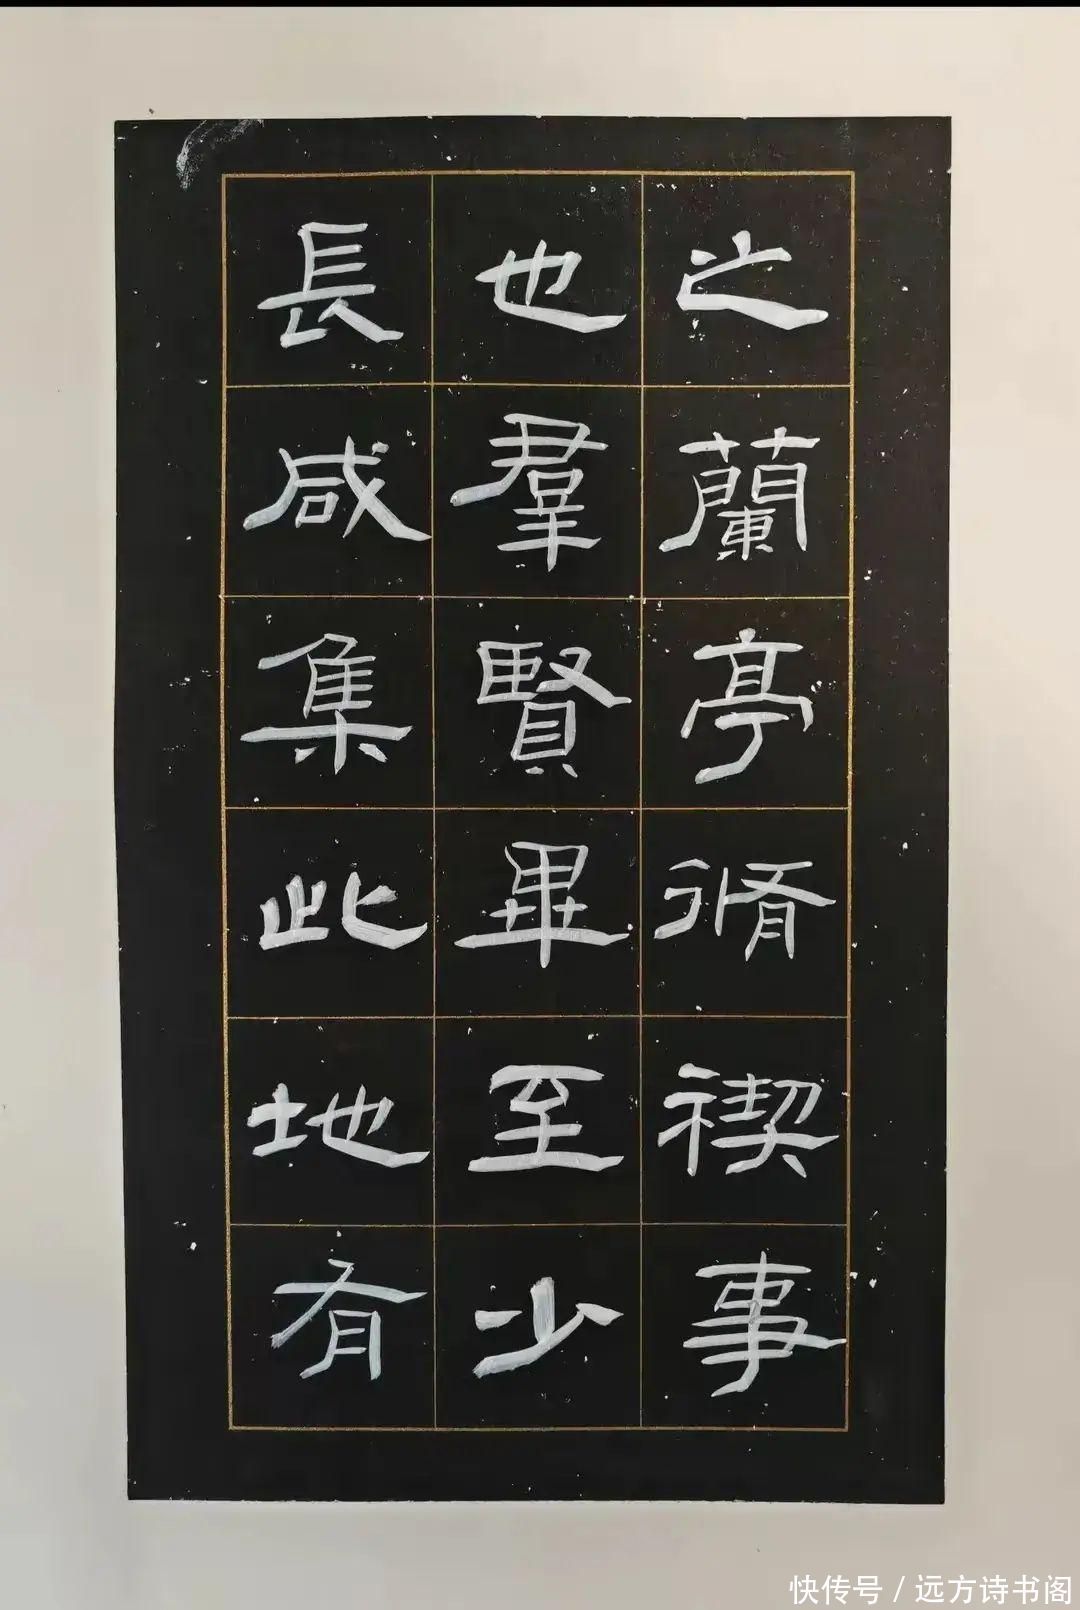 之蘭亭脩禊事
也羣賢畢至少
長咸集此地有
快传号 / 远方诗书阁